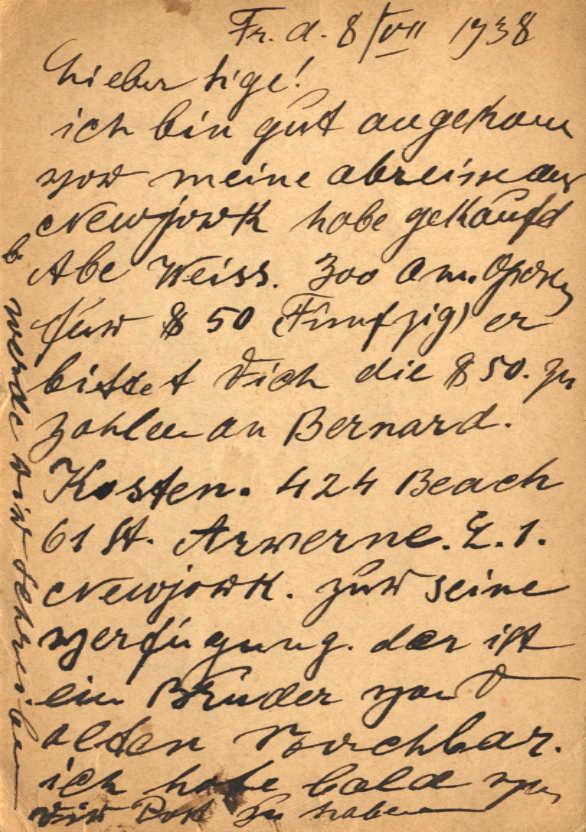 Fr. d. 8/VII 1938
Lieber Sige!
ich bin gut angekom
vor meine abreise aus
Newjork habe gekaufd
Abe Weiss. 300 Am.
für $ 50 (Fünfzig) er
bittet Dich die $ 50. zu
zahlen an Bernard.
Kosten. 424 Beach
61 St. Arwerne. L. 1.
Newjork. zur seine
verfügung. der ist
ein Bruder von
alten Nachbar.
ich hofe bald von
dir Post zu haben
werde dir schreiben